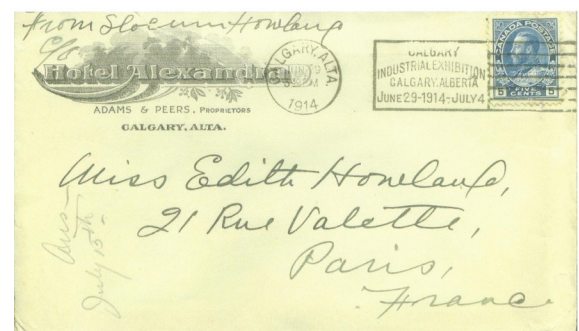 From Slocum Howland
c/o
Hotel Alexandra
ADAMS & PEERS, PROPRIETORS
CALGARY, ALTA.
CALGARY, ALTA.
1914
CALGARY
INDUSTRIAL EXHIBITION
CALGARY. ALBERTA
JUNE 29-1914-JULY 4
CANADA POSTAGE
5 5
FIVE
CENTS
Miss Edith Howland,
21 Rue Valette,
Paris,
France
Ans
July 15th